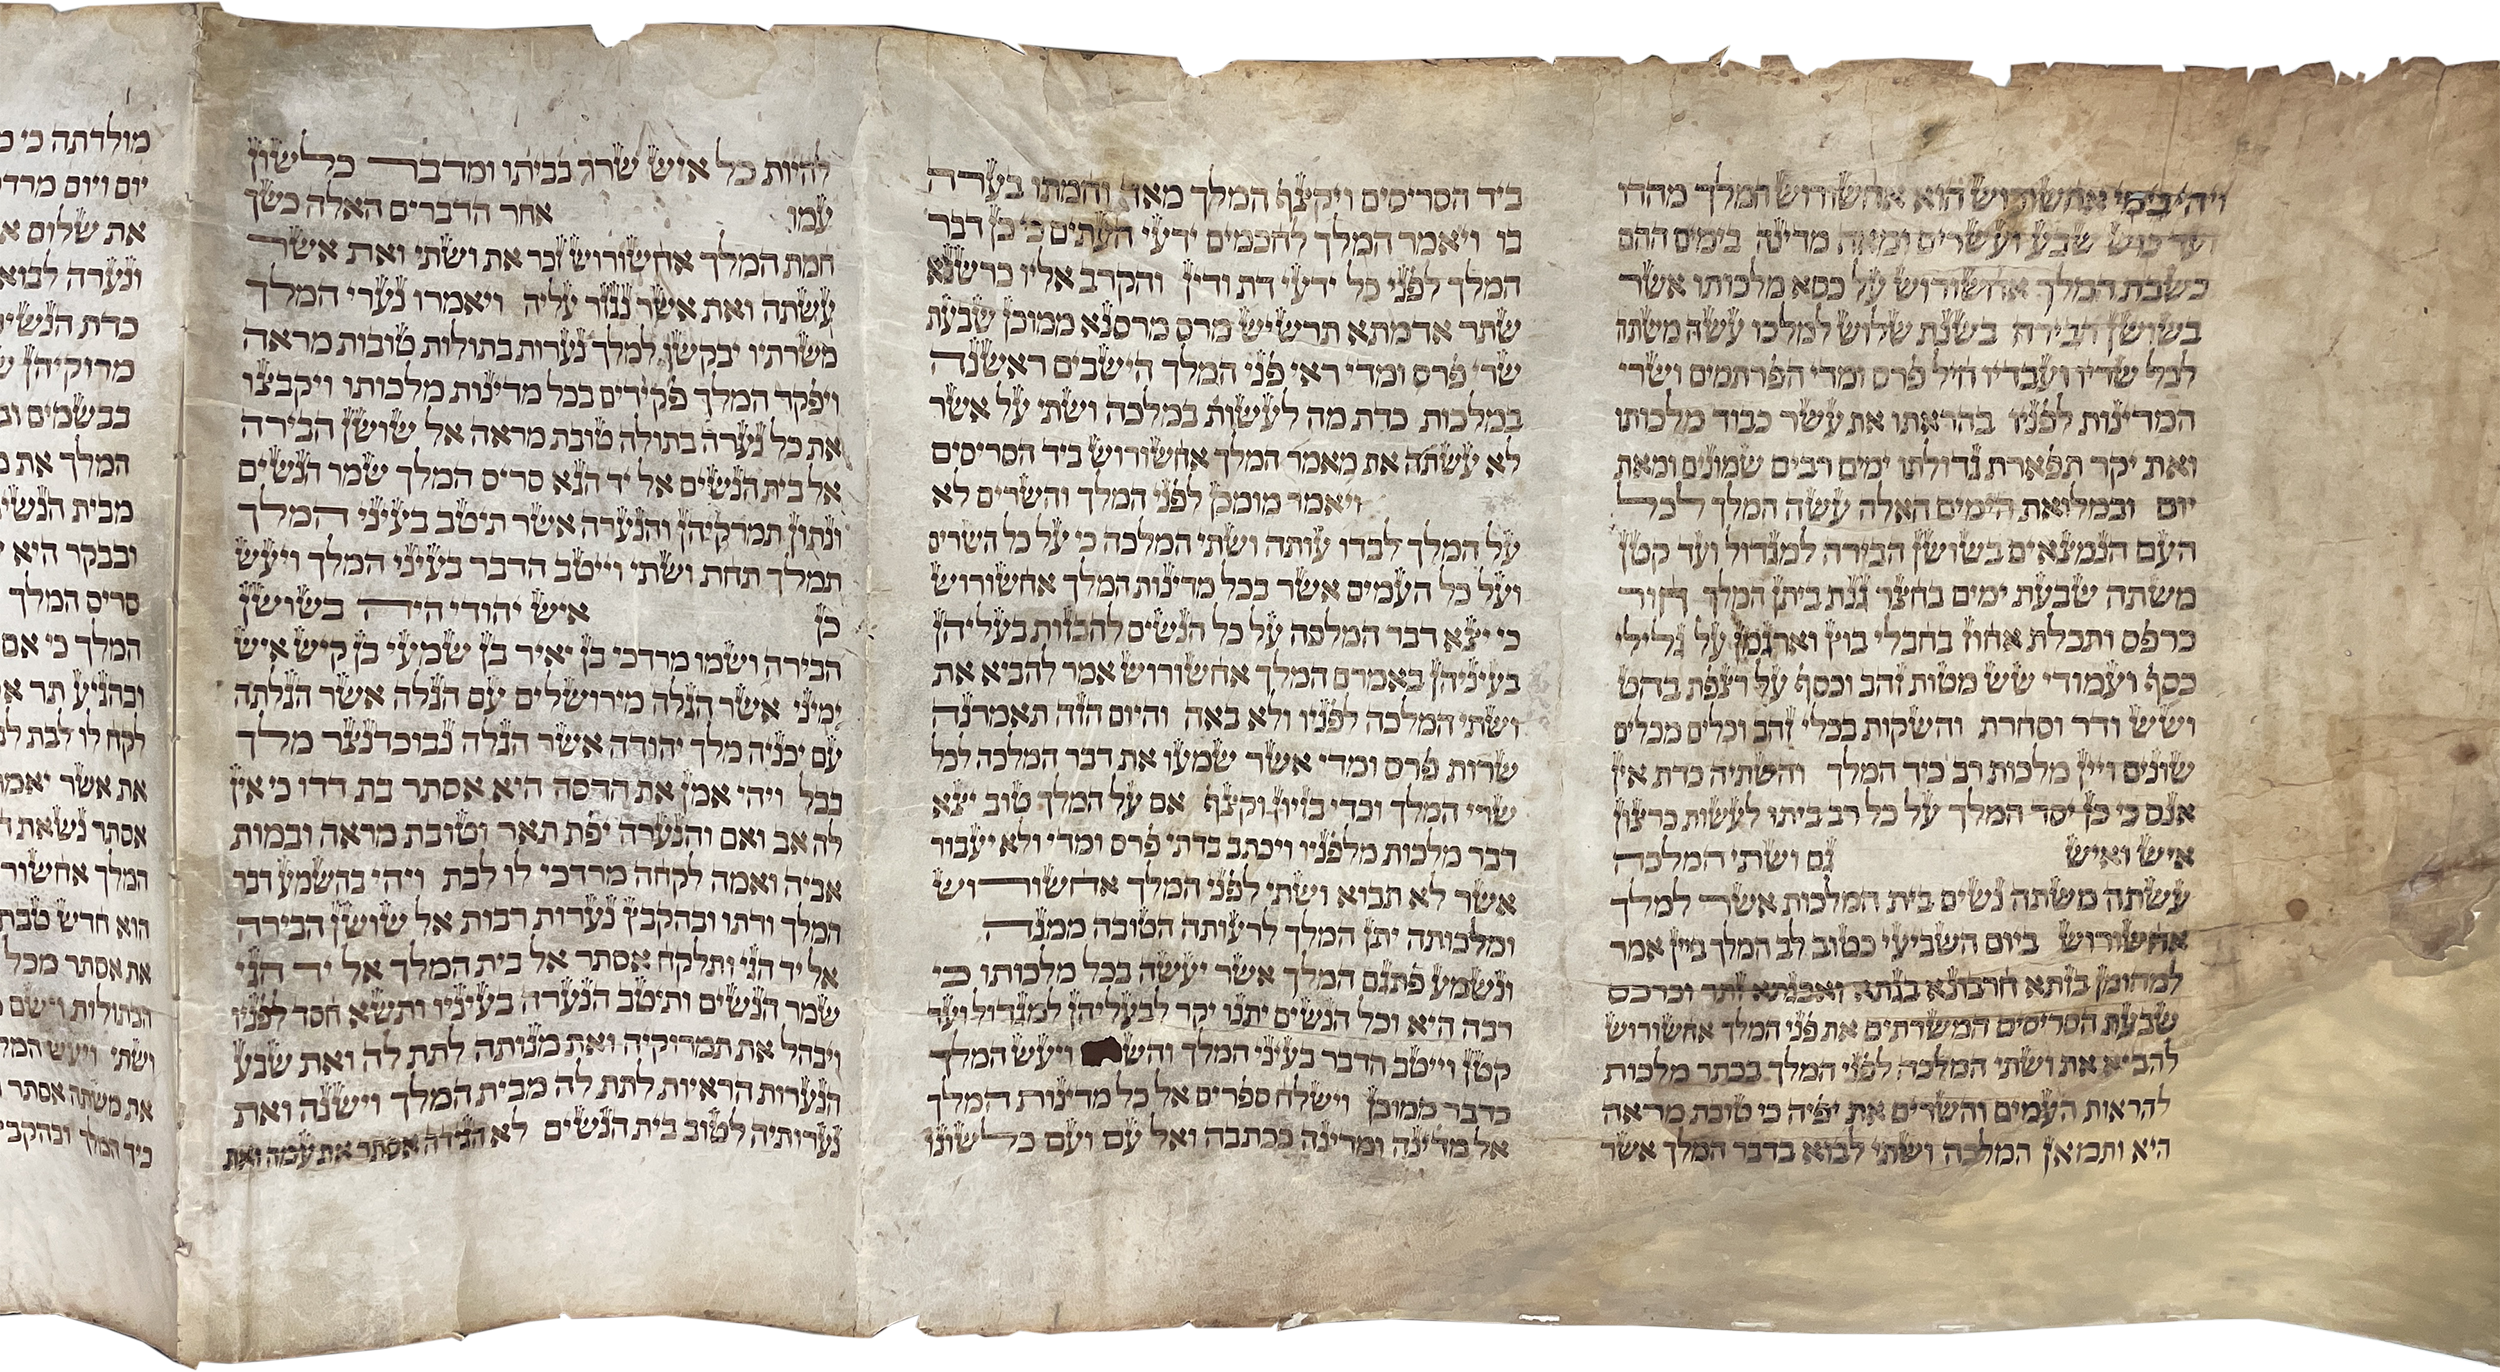 ויהי בימי אחשורוש הוא אחשורוש המלך מהדו
ועד כוש שבע ועשרים ומאה מדינה בימים ההם
כשבת המלך אחשורוש על כסא מלכותו אשר
בשושן הבירה בשנת שלוש למלכו עשה משתה
לכל שריו ועבדיו חיל פרס ומדי הפרתמים ושרי
המדינות לפניו בהראתו את עשר כבוד מלכותו
ואת יקר תפארת גדולתו ימים רבים שמונים ומאת
יום ובמלואת הימים האלה עשה המלך לכל
העם הנמצאים בשושן הבירה למגדול ועד קטן
משתה שבעת ימים בחצר גנת ביתן המלך חור
כרפס ותכלת אחוז בחבלי בוץ וארגמן על גלילי
כסף ועמודי שש מטות זהב וכסף על רצפת בהט
ושש ודר וסחרת והשקות בכלי זהב וכלים מכלים
שונים ויין מלכות רב כיד המלך והשתיה כדת אין
אנס כי כן יסד המלך על כל רב ביתו לעשות כרצון
איש ואיש גם ושתי המלכה
עשתה משתה נשים בית המלכות אשר למלך
אחשורוש ביום השביעי כטוב לב המלך ביין אמר
למהומן בזתא חרבונא בגתא ואבגתא זתר וכרכס
שבעת הסריסים המשרתים את פני המלך אחשורוש
להביא את ושתי המלכה לפני המלך בכתר מלכות
להראות העמים והשרים את יפיה כי טובת מראה
היא ותמאן המלכה ושתי לבוא בדבר המלך אשר
ביד הסריסים ויקצף המלך מאד וחמתו בערה
בו ויאמר המלך לחכמים ידעי העתים כי כן דבר
המלך לפני כל ידעי דת ודין והקרב אליו כרשנא
שתר אדמתא תרשיש מרס מרסנא ממוכן שבעת
שרי פרס ומדי ראי פני המלך הישבים ראשנה
במלכות כדת מה לעשות במלכה ושתי על אשר
לא עשתה את מאמר המלך אחשורוש ביד הסריסים
ויאמר מומכן לפני המלך והשרים לא
על המלך לבדו עותה ושתי המלכה כי על כל השרים
ועל כל העמים אשר בכל מדינות המלך אחשורוש
כי יצא דבר המלכה על כל הנשים להבזות בעליהן
בעיניהן באמרם המלך אחשורוש אמר להביא את
ושתי המלכה לפניו ולא באה והיום הזה תאמרנה
שרות פרס ומדי אשר שמעו את דבר המלכה לכל
שרי המלך וכדי בזיון וקצף אם על המלך טוב יצא
דבר מלכות מלפניו ויכתב בדתי פרס ומדי ולא יעבור
אשר לא תבוא ושתי לפני המלך אחשורוש
ומלכותה יתן המלך לרעותה הטובה ממנה
ונשמע פתגם המלך אשר יעשה בכל מלכותו כי
רבה היא וכל הנשים יתנו יקר לבעליהן למגדול ועד
קטן וייטב הדבר בעיני המלך ויעש המלך
כדבר ממוכן וישלח ספרים אל כל מדינות המלך
אל מדינה ומדינה ככתבה ואל עם ועם כלשונו
להיות כל איש שרר בביתו ומדבר כלשון
עמו אחר הדברים האלה כשך
חמת המלך אחשורוש זכר את ושתי ואת אשר
עשתה ואת אשר נגזר עליה ויאמרו נערי המלך
משרתיו יבקשו למלך נערות בתולות טובות מראה
ויפקד המלך פקידים בכל מדינות מלכותו ויקבצו
את כל נערה בתולה טובת מראה אל שושן הבירה
אל בית הנשים אל יד הגא סריס המלך שמר הנשים
ונתון תמרקיהן והנערה אשר תיטב בעיני המלך
תמלך תחת ושתי וייטב הדבר בעיני המלך ויעש
כן איש יהודי היה בשושן
הבירה ושמו מרדכי בן יאיר בן שמעי בן קיש איש
ימיני אשר הגלה מירושלים עם הגלה אשר הגלתה
עם יכניה מלך יהודה אשר הגלה נבוכדנצר מלך
בבל ויהי אמן את הדסה היא אסתר בת דדו כי אין
לה אב ואם והנערה יפת תאר וטובת מראה ובמות
אביה ואמה לקחה מרדכי לו לבת ויהי בהשמע דבר
המלך ודתו ובהקבץ נערות רבות אל שושן הבירה
אל יד הגי ותלקח אסתר אל בית המלך אל יד הגי
שמר הנשים ותיטב הנערה בעיניו ותשא חסד לפניו
ויבהל את תמרוקיה ואת מנותה לתת לה ואת שבע
הנערות הראיות לתת לה מבית המלך וישנה ואת
נערותיה לטוב בית הנשים לא הגידה אסתר את עמה ואת
מולדתה כי
יום ויום
את שלום
ונערה לבוא
כדת
מרוקיהן
בבשמים
המלך את
מבית
ובבקר היא
סריס המלך
המלך כי אם
ובהגיע תר
לקח לו לבת
את אשר
אסתר נשאת
המלך
הוא חדש טבת
את אסתר מכל
הבתולות וישם
ושתי ויעש
את משתה אסתר
כיד המלך